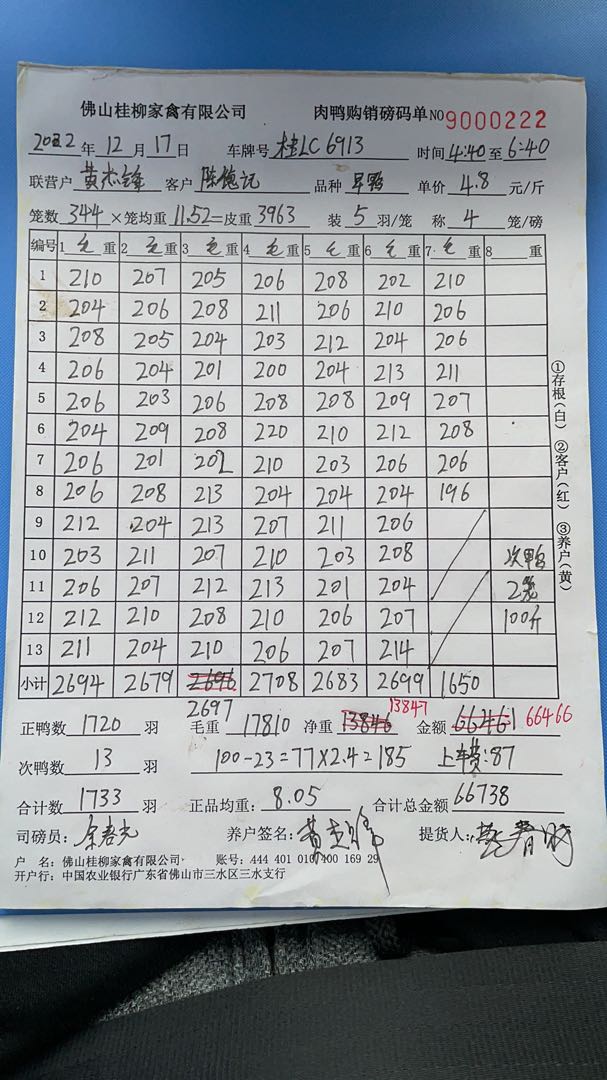 佛山桂柳家禽有限公司 肉鸭购销磅码单 NO 9000222
2022年 12月 17日 车牌号 桂LC6913 时间 4:40 至 6:40
联营户 黄杰锋 客户 陈德记 品种 旱鸭 单价 4.8 元/斤
笼数 344 ×笼均重 11.52=皮重 3963 装 5 羽/笼 称 4 笼/磅
编号 1 毛 重 2 毛 重 3 毛 重 4 毛 重 5 毛 重 6 毛 重 7 毛 重 8 重
1 210 207 205 206 208 202 210
2 204 206 208 211 206 210 206
3 208 205 204 203 212 204 206
4 206 204 201 200 204 213 211
5 206 203 206 208 208 209 207
6 204 209 208 220 210 212 208
7 206 201 202 210 203 206 206
8 206 208 213 204 204 204 196
9 212 204 213 207 211 206
10 203 211 207 210 203 208 次鸭
11 206 207 212 213 201 204 2笼
12 212 210 208 210 206 207 100斤
13 211 204 210 206 207 214
小计 2694 2679 2696 2708 2683 2699 1650
2697 13847
正鸭数 1720 羽 毛重 17810 净重 13846 金额 66461 66466
次鸭数 13 羽 100-23=77×2.4=185 上车费:87
合计数 1733 羽 正品均重: 8.05 合计总金额 66738
司磅员: 养户签名: 提货人:
户 名: 佛山桂柳家禽有限公司 账号: 444 401 010 400 169 29
开户行: 中国农业银行广东省佛山市三水区三水支行
①存根(白) ②客户(红) ③养户(黄)